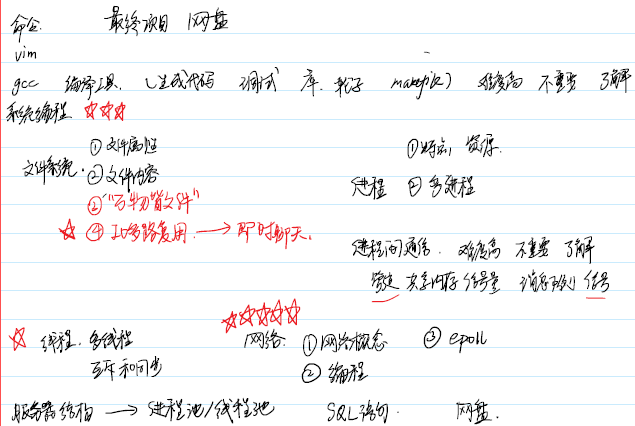 命令. 最终项目 网盘
vim
gcc 编译工具. (生成代码 调试 库. 轮子 makefile) 难度高 不重要 了解
系统编程 ☆☆☆
文件系统.
① 文件属性
② 文件内容
③ "万物皆文件"
☆ ④ IO多路复用 → 即时聊天.
进程
① 概念, 资源.
② 多进程
进程间通信. 难度高 不重要 了解
管道 共享内存 信号量 消息队列 信号
☆ 线程. 多线程
互斥和同步
☆☆☆☆☆
网络. ① 网络概念 ③ epoll
② 编程
服务器结构 → 进程池/线程池 SQL语句. 网盘.